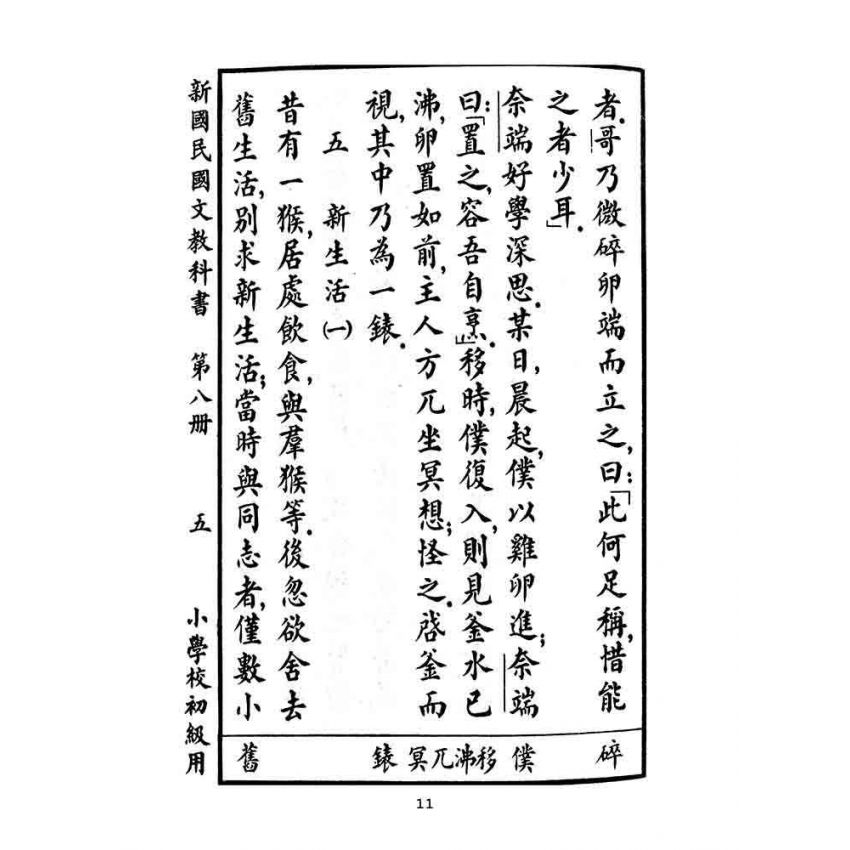 者.哥乃微碎卵端而立之,曰:「此何足稱,惜能
之者少耳」.
奈端好學深思.某日,晨起,僕以雞卵進;奈端
曰:「置之,容吾自烹」.移時,僕復入,則見釜水已
沸,卵置如前,主人方兀坐冥想;怪之.啓釜而
視,其中乃為一錶.
五 新生活㈠
昔有一猴,居處飲食,與羣猴等.後忽欲舍去
舊生活,別求新生活;當時與同志者,僅數小
碎
僕
移沸兀冥
錶
舊
新國民國文教科書 第八册 五 小學校初級用
11